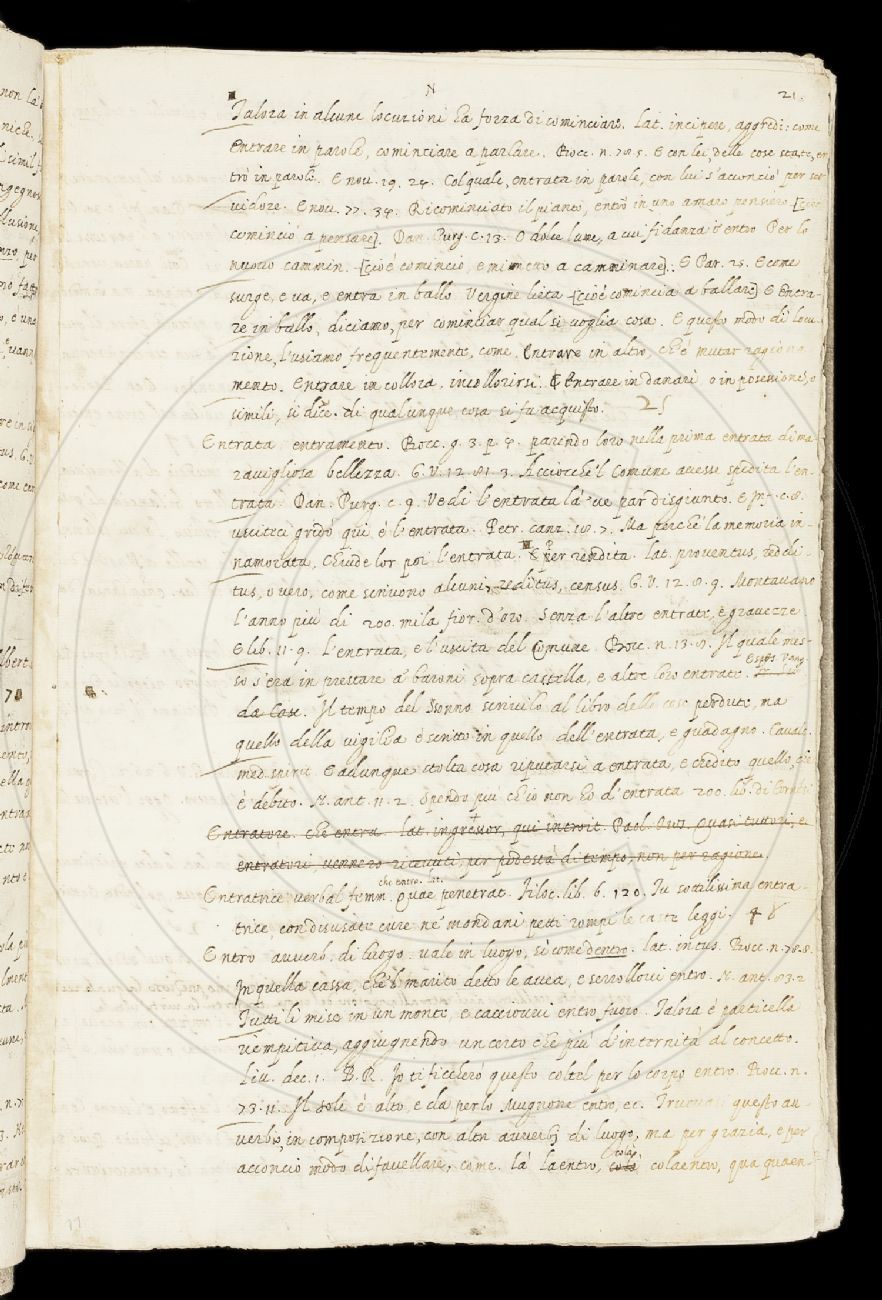 N
21.
Talora in alcune locuzioni ha forza di cominciare. Lat. incipere, aggredi: come
Entrare in parole, cominciare a parlare. Bocc. n. 78. 5. E con lei, delle cose state, en
trò in parole. E nov. 19. 24. Col quale, entrata in parole, con lui s'acconciò per ser
vidore. E nov. 77. 34. Ricominciato il pianto, entrò in uno amaro pensiero [cioè
cominciò a pensare]. Dan. Purg. c. 13. O dolce lume, a cui fidanza i' entro Per lo
nuovo cammin. [cioè comincio, e mi metto a camminare]. E Par. 25. E come
surge, e va, e entra in ballo Vergine lieta [cioè comincia a ballare] E Entra-
re in ballo, diciamo, per cominciar qual si voglia cosa. E questo modo di locu
zione, l'usiamo frequentemente, come, Entrare in altro, ch'è mutar ragiona
mento. Entrare in collora, incollorirsi. E Entrare in danari, o in possessione, o
simili, si dice di qualunque cosa si fa acquisto. 25
Entrata. entramento. Bocc. g. 3. p. 4. parendo loro nella prima entrata di ma
ravigliosa bellezza. G. V. 12. 81. 3. Acciocchè 'l Comune avesse spedita l'en
trata. Dan. Purg. c. 9. Vedi l'entrata là 've par disgiunto. E Inf. c. 8.
usciteci gridò qui è l'entrata. Petr. canz. 18. 7. Ma perchè la memoria in-
namorata, Chiude lor poi l'entrata. E Per rendita. lat. proventus, reddi-
tus, o vero, come scrivono alcuni, reditus, census. G. V. 12. 8. 9. Montavano
l'anno più di 200. mila fior. d'oro. Senza l'altre entrate, e gravezze
E lib. 11. 9. L'entrata, e l'uscita del Comune. Bocc. n. 13. 8. Il quale mes-
so s'era in prestare a' baroni sopra castella, e altre loro entrate. Espos. Vang.
da Casc. Il tempo del sonno scrivilo al libro delle cose perdute, ma
quello della vigilia è scritto in quello dell'entrata, e guadagno. Cavalc.
med. spirit. E adunque stolta cosa riputarsi a entrata, e credito quello, che
è debito. N. ant. 11. 2. Spendo più ch'io non ho d'entrata 200. lib. di
Entratore. che entra. lat. ingressor, qui introit. Paol. Oros. Quasi tuttori, e
entratori, vennero ricevuti, per podestà di tempo, non per ragione.
che entra. lat.
Entratrice verbal femm. Quae penetrat. Filoc. lib. 6. 120. Tu sottilissima entra-
trice, con disusate cure ne' mondani petti rompi le caste leggi. 48
Entro avverb. di luogo. vale in luogo, sì come dentro. lat. intus. Bocc. n. 78. 8.
In quella cassa, che 'l marito detto le avea, e serrollovi entro. N. ant. 83. 2
Tutti li mise in un monte, e cacciovvi entro fuoco. Talora è particella
riempitiva, aggiugnendo un certo che più d'internità al concetto.
Liv. dec. 1. B. R. Io ti ficcherò questo coltel per lo corpo entro. Bocc. n.
73. 11. Il sole è alto, e dà per lo Mugnone entro, ec. Truovasi questo av
verbio, in composizione, con altri avverbj di luogo, ma per grazia, e per
colà,
acconcio modo di favellare, come. là laentro, colà colaentro, qua quaen